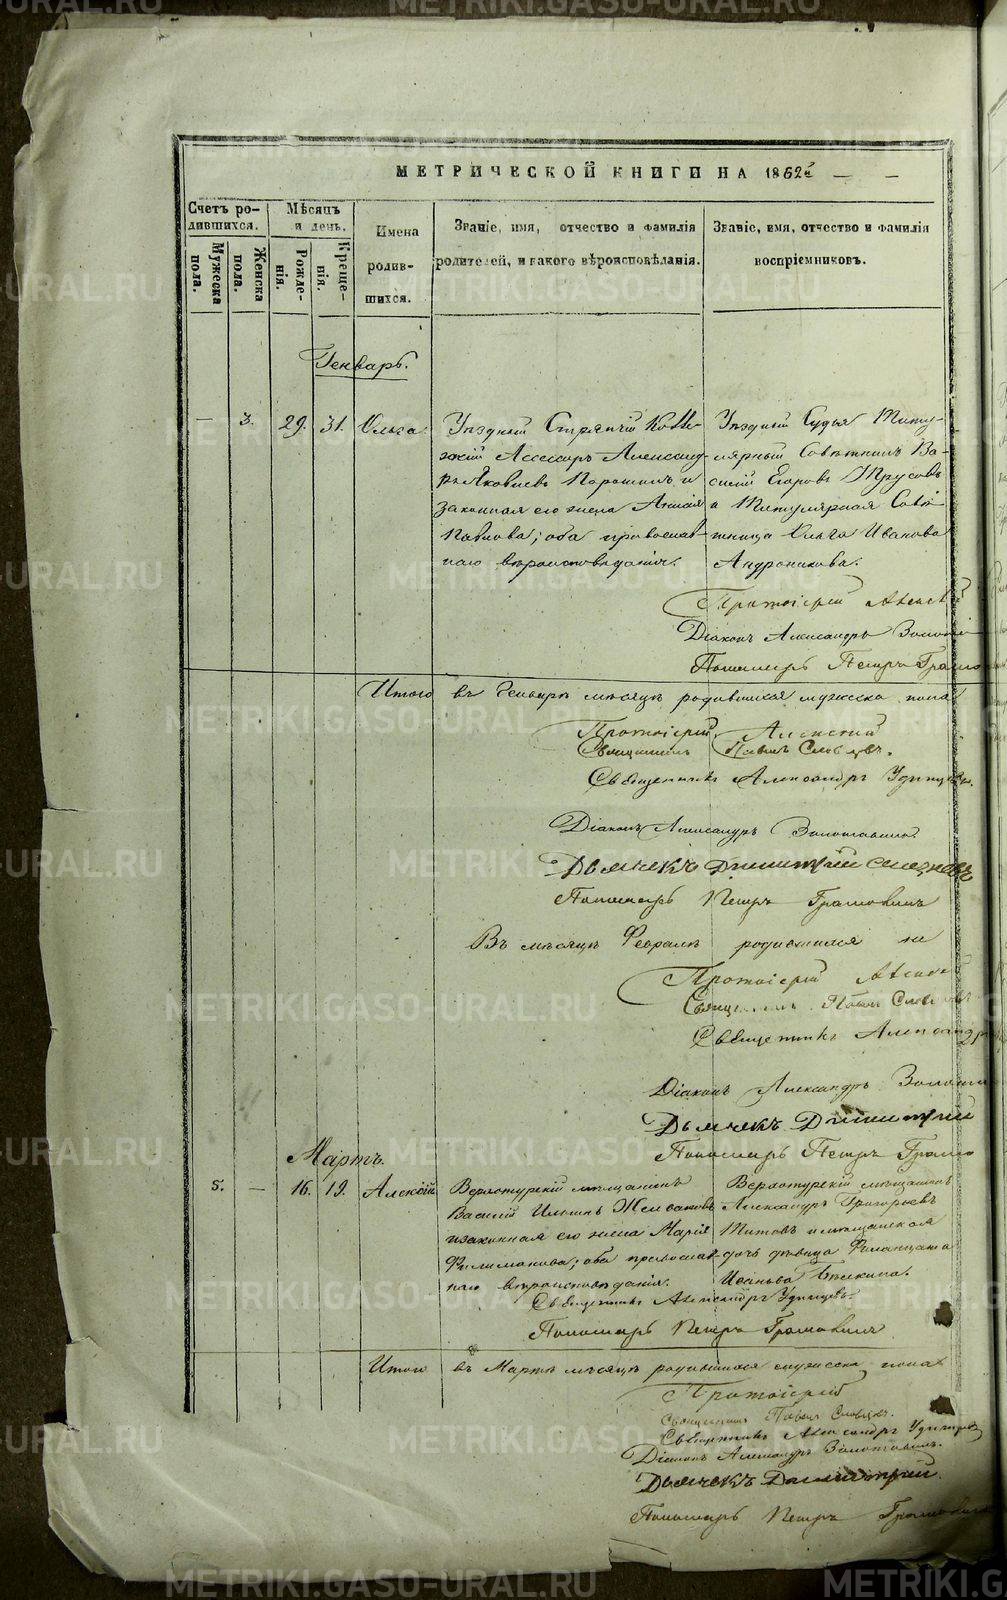 МЕТРИЧЕСКОЙ КНИГИ НА 1862й
Счетъ ро-
дившихся.
Мѣсяцъ
и день.
Имена
родив-
шихся.
Званіе, имя, отчество и фамилія
родителей, и какого вѣроисповѣданія.
Званіе, имя, отчество и фамилія
воспріемниковъ.
Мужеска
пола.
Женска
пола.
Рожде-
нія.
Креще-
нія.
Генварь.
— 3. 29. 31. Ольга.
Уѣздный Стряпчій Колле-
жскій Ассесоръ Александ-
ръ Яковлевъ Порошинъ и
законная его жена
Павлова; оба православ-
наго вѣроисповѣданія.
Уѣздный Судья Титу-
лярный Совѣтникъ Ва-
силій Егоровъ Трусовъ
и Титулярная Совѣ-
тница Ольга Иванова
Андроникова.
Протоіерей Алексѣй
Діаконъ Александръ
Пономарь Петръ
Итого въ Генварѣ мѣсяцѣ родившихся мужеска пола
Протоіерей Алексѣй
Священникъ Павелъ Словцовъ.
Священникъ Александръ Удинцевъ.
Діаконъ Александръ Золотавинъ.
Дьячекъ Димитрій
Пономарь Петръ Грамовинъ
Въ мѣсяцѣ Февралѣ родившихся не
Протоіерей Алексѣй
Священникъ Павелъ
Священникъ Александръ
Діаконъ Александръ
Дьячекъ Димитрій
Пономарь Петръ
Мартъ.
5. — 16. 19. Алексѣй
Верхотурскій мѣщанинъ
Василій Ильинъ Желваковъ
и законная его жена Марія
Филимонова; оба православ-
наго вѣроисповѣданія.
Верхотурскій мѣщанинъ
Александръ Григорьевъ
Титовъ и мѣщанская
дочь дѣвица
Священникъ Александръ Удинцевъ.
Пономарь Петръ Грамовинъ
Итого въ Мартѣ мѣсяцѣ родившихся мужеска пола
Протоіерей
Священникъ Павелъ Словцовъ.
Священникъ Александръ Удинцевъ
Діаконъ Александръ Золотавинъ.
Дьячекъ Димитрій.
Пономарь Петръ Грамовинъ
METRIKI.GASO-URAL.RU